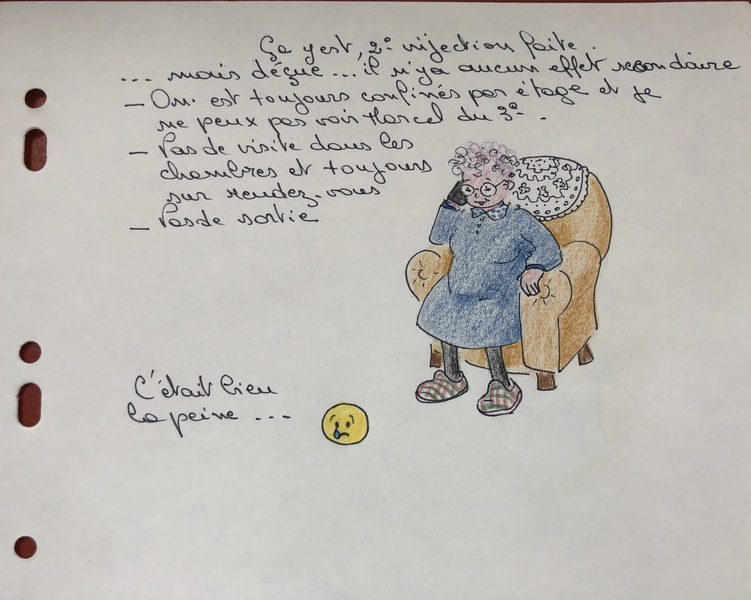 Ça y est, 2e injection faite.
... mais déçue... il n'y a aucun effet secondaire
- On est toujours confinés par étage et je
ne peux pas voir Marcel du 3e.
- Pas de visite dans les
chambres et toujours
sur rendez-vous
- Pas de sortie
C'était bien
la peine ...